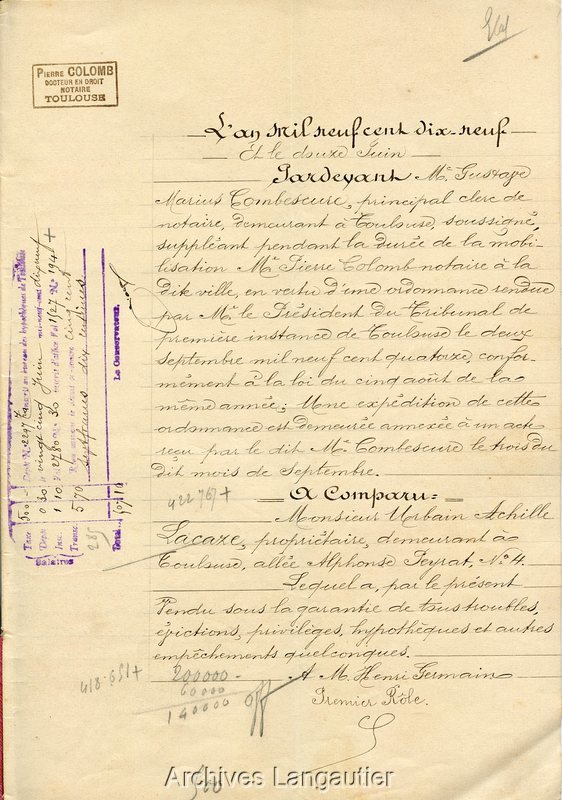 PIERRE COLOMB
DOCTEUR EN DROIT
NOTAIRE
TOULOUSE
L'an mil neuf cent dix-neuf
Et le douze Juin
Pardevant Me Gustave
Marius Combescure, principal clerc de
notaire, demeurant à Toulouse, soussigné,
suppléant pendant la durée de la mobi-
lisation Me Pierre Colomb notaire à la
dite ville, en vertu d'une ordonnance rendue
par M. le Président du Tribunal de
première instance de Toulouse le deux
septembre mil neuf cent quatorze, confor-
mément à la loi du cinq août de la
même année; Une expédition de cette
ordonnance est demeurée annexée à un acte
reçu par le dit Me Combescure le trois du
dit mois de Septembre.
A Comparu =
Monsieur Urbain Achille
Lacaze, propriétaire, demeurant à
Toulouse, allée Alphonse Peyrat, No 4.
Lequel a, par le présent
Vendu sous la garantie de tous troubles,
évictions, privilèges, hypothèques et autres
empêchements quelconques.
A M. Henri Germain
Premier Rôle.
422.767 +
418.651 +
200000
60000
140000
off
Taxe
Dépôt
Insc.
Transc.
Salaires
Total
Le Conservateur,
Archives Langautier